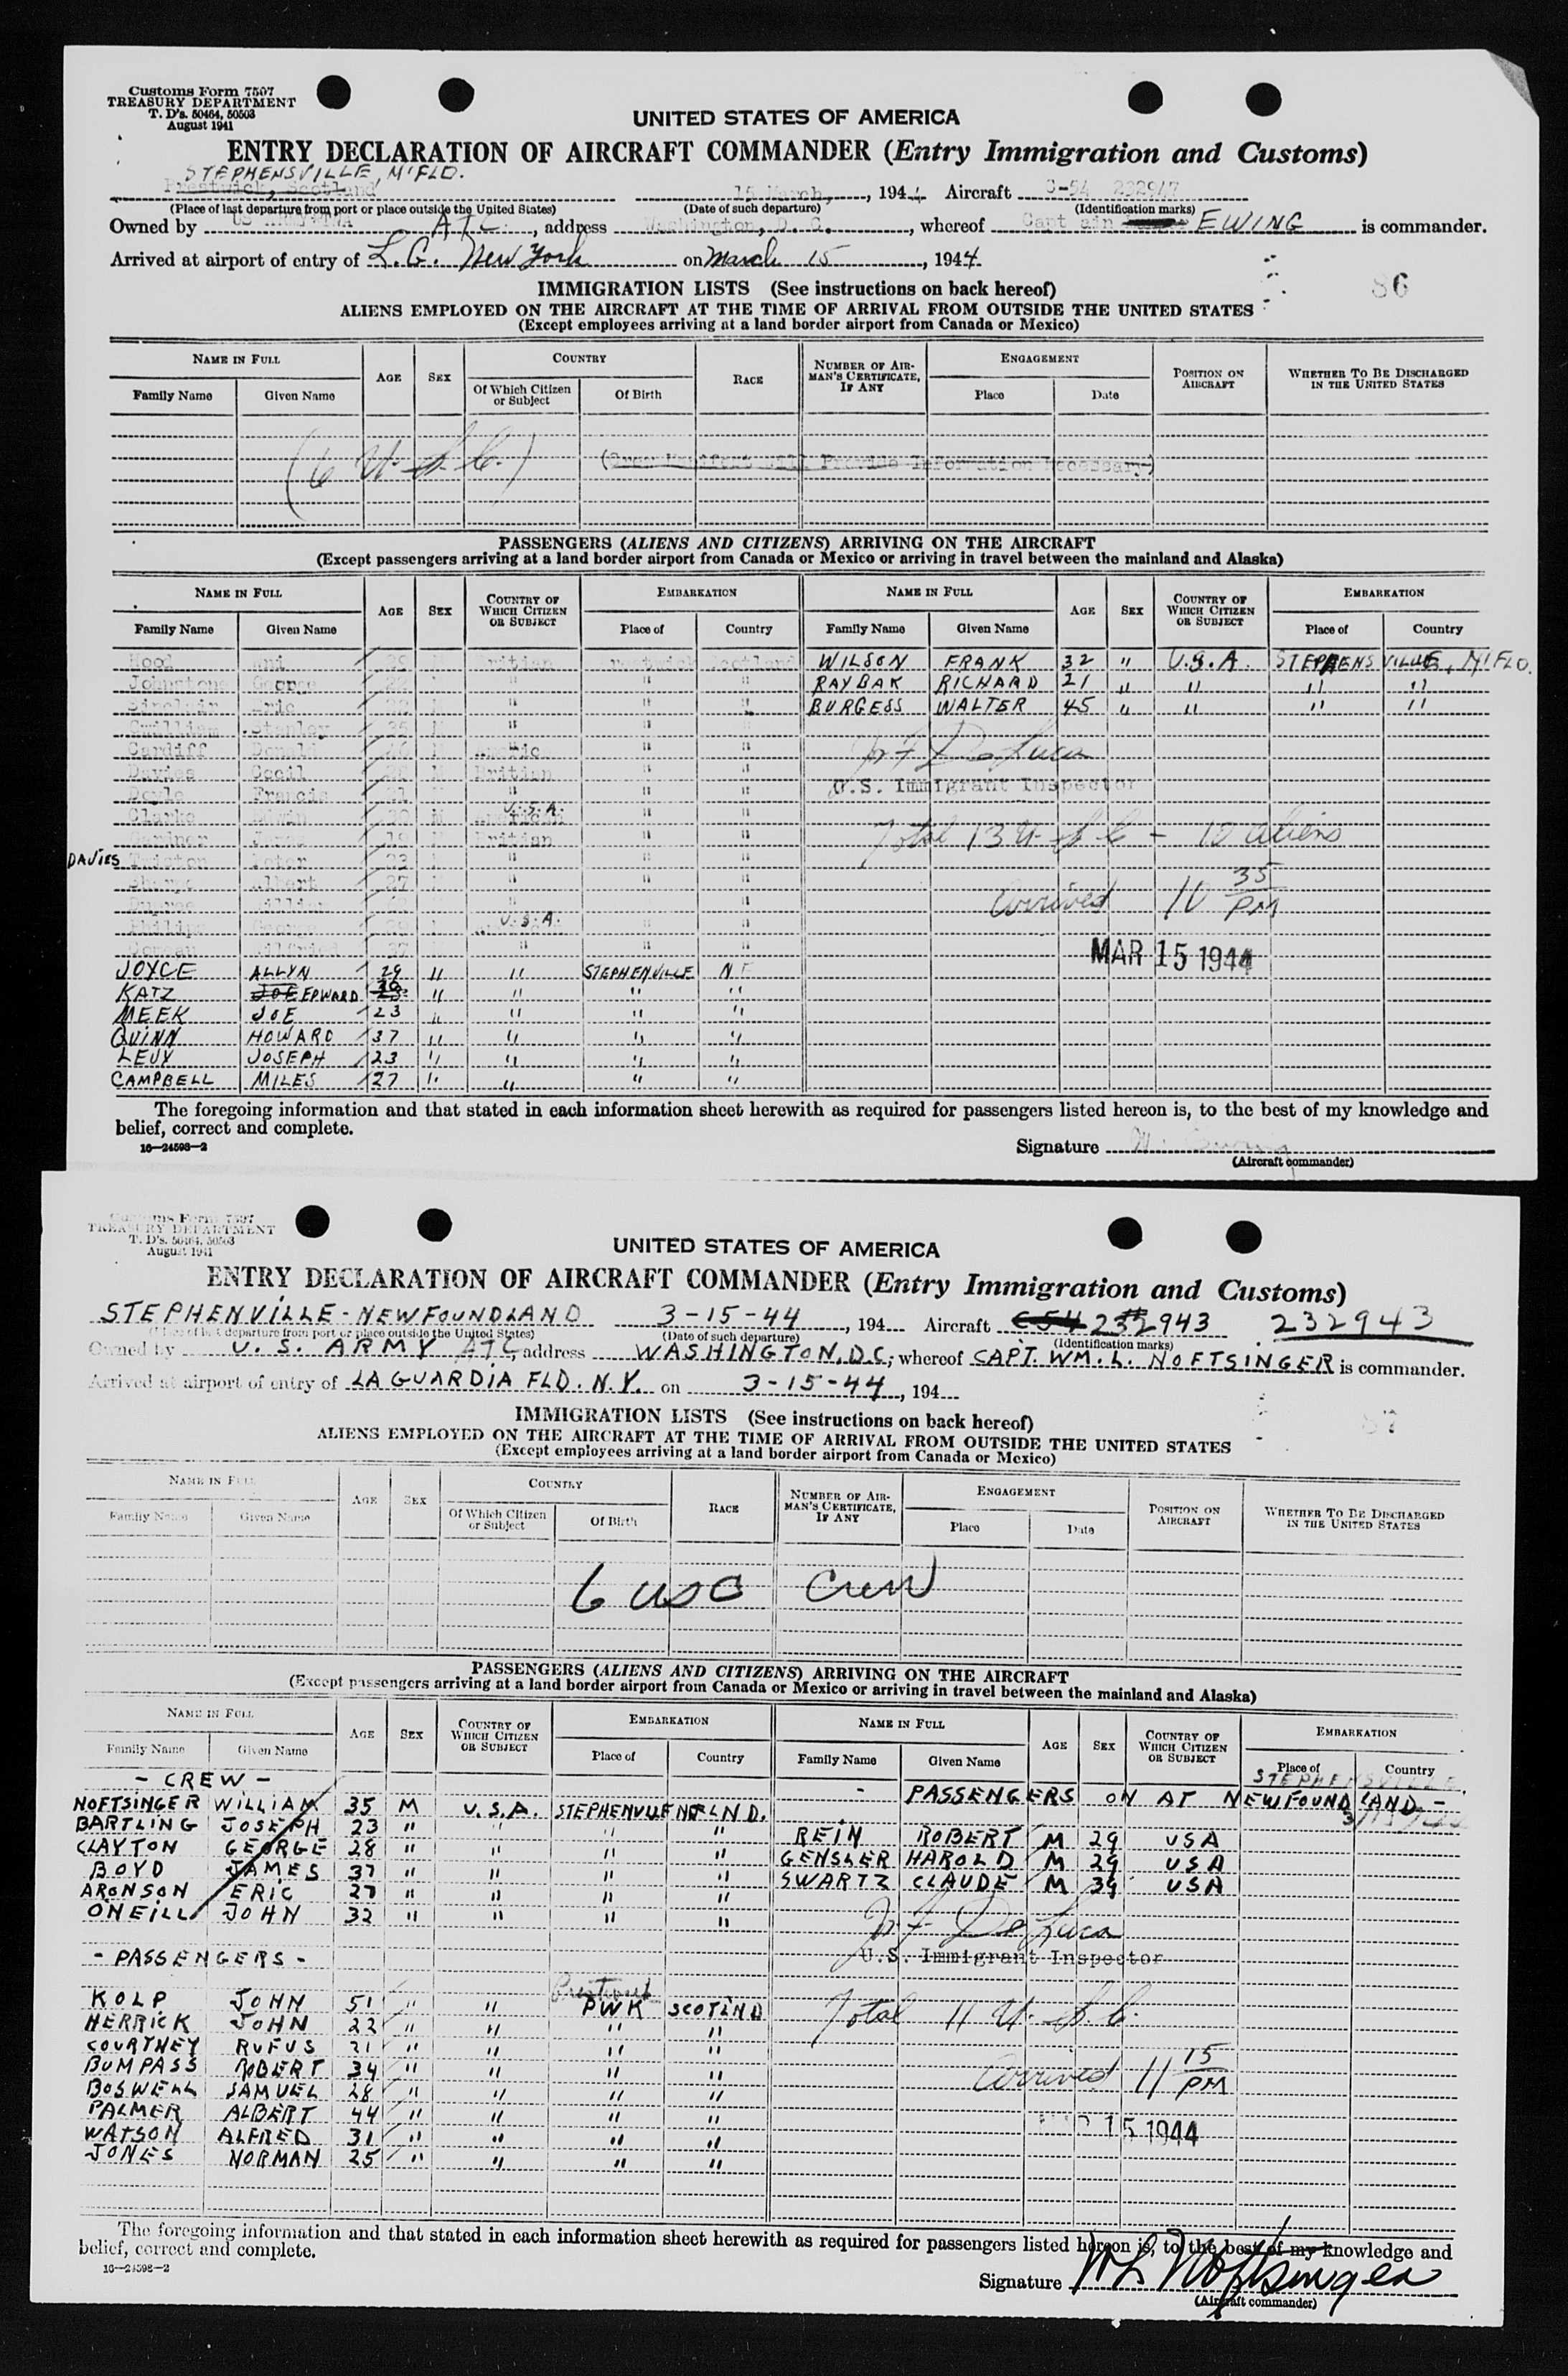 Customs Form 7507
TREASURY DEPARTMENT
T. D's. 50464, 50503
August 1941
UNITED STATES OF AMERICA
ENTRY DECLARATION OF AIRCRAFT COMMANDER (Entry Immigration and Customs)
STEPHENSVILLE, N'FLD.
Prestwick, Scotland 15 March, 1944 Aircraft C-54 232947
(Place of last departure from port or place outside the United States) (Date of such departure) (Identification marks)
Owned by US ATC, address Washington, D. C., whereof Captain EWING is commander.
Arrived at airport of entry of L.G. New York on March 15, 1944.
86
IMMIGRATION LISTS (See instructions on back hereof)
ALIENS EMPLOYED ON THE AIRCRAFT AT THE TIME OF ARRIVAL FROM OUTSIDE THE UNITED STATES
(Except employees arriving at a land border airport from Canada or Mexico)
NAME IN FULL AGE SEX COUNTRY RACE NUMBER OF AIRMAN'S CERTIFICATE, IF ANY ENGAGEMENT POSITION ON AIRCRAFT WHETHER TO BE DISCHARGED IN THE UNITED STATES
Family Name Given Name Of Which Citizen or Subject Of Birth Place Date
(6 U.S.C.) (Crew Manifest Will Provide Information Necessary)
PASSENGERS (ALIENS AND CITIZENS) ARRIVING ON THE AIRCRAFT
(Except passengers arriving at a land border airport from Canada or Mexico or arriving in travel between the mainland and Alaska)
NAME IN FULL AGE SEX COUNTRY OF WHICH CITIZEN OR SUBJECT EMBARKATION NAME IN FULL AGE SEX COUNTRY OF WHICH CITIZEN OR SUBJECT EMBARKATION
Family Name Given Name Place of Country Family Name Given Name Place of Country
Hood Scotland WILSON FRANK 32 " U.S.A. STEPHENSVILLE, N'FLD.
Johnstone George 22 " " " RAYBAK RICHARD 21 " " " "
Sinclair Eric 22 M " " " BURGESS WALTER 45 " " " "
Stanley 25 M " " "
Cardiff Donald M " " W F DeLuca
Davies Cecil M Britian " " U.S. Immigrant Inspector
Doyle Francis 21 M " " "
Clarke M U.S.A. " "
Gardner James 19 M Britian " " Total 13 U.S.C - 10 aliens
DAVIES Peter 23 " " "
Albert 27 " " "
" " Arrived 10 35 PM
Philips George U.S.A. " "
Wilfried 27 " " "
MAR 15 1944
JOYCE ALLYN 29 " " STEPHENVILLE NF
KATZ JOE EDWARD " " " "
MEEK JOE 23 " " " "
QUINN HOWARD 37 " " " "
LEVY JOSEPH 23 " " " "
CAMPBELL MILES 27 " " " "
The foregoing information and that stated in each information sheet herewith as required for passengers listed hereon is, to the best of my knowledge and
belief, correct and complete.
16—24598-2
Signature
(Aircraft commander)
Customs Form 7507
TREASURY DEPARTMENT
T. D's. 50464, 50503
August 1941
UNITED STATES OF AMERICA
ENTRY DECLARATION OF AIRCRAFT COMMANDER (Entry Immigration and Customs)
STEPHENVILLE - NEWFOUNDLAND 3-15-44, 194 Aircraft C54 232943 232943
(Place of last departure from port or place outside the United States) (Date of such departure) (Identification marks)
Owned by U. S. ARMY ATC, address WASHINGTON, D.C., whereof CAPT. WM. L. NOFTSINGER is commander.
Arrived at airport of entry of LA GUARDIA FLD. N.Y. on 3-15-44, 194
87
IMMIGRATION LISTS (See instructions on back hereof)
ALIENS EMPLOYED ON THE AIRCRAFT AT THE TIME OF ARRIVAL FROM OUTSIDE THE UNITED STATES
(Except employees arriving at a land border airport from Canada or Mexico)
NAME IN FULL AGE SEX COUNTRY RACE NUMBER OF AIRMAN'S CERTIFICATE, IF ANY ENGAGEMENT POSITION ON AIRCRAFT WHETHER TO BE DISCHARGED IN THE UNITED STATES
Family Name Given Name Of Which Citizen or Subject Of Birth Place Date
6 USC Crew
PASSENGERS (ALIENS AND CITIZENS) ARRIVING ON THE AIRCRAFT
(Except passengers arriving at a land border airport from Canada or Mexico or arriving in travel between the mainland and Alaska)
NAME IN FULL AGE SEX COUNTRY OF WHICH CITIZEN OR SUBJECT EMBARKATION NAME IN FULL AGE SEX COUNTRY OF WHICH CITIZEN OR SUBJECT EMBARKATION
Family Name Given Name Place of Country Family Name Given Name Place of Country
- CREW - STEPHENSVILLE
NOFTSINGER WILLIAM 35 M U.S.A. STEPHENVILLE NFLND. - PASSENGERS ON AT NEWFOUNDLAND -
BARTLING JOSEPH 23 " " " " REIN ROBERT M 29 USA
CLAYTON GEORGE 28 " " " " GENSLER HAROLD M 29 USA
BOYD JAMES 37 " " " " SWARTZ CLAUDE M 39 USA
ARONSON ERIC 27 " " " "
ONEILL JOHN 32 " " " " W F DeLuca
- PASSENGERS - U.S. Immigrant Inspector
Prestwick
KOLP JOHN 51 " " PWK SCOTLND Total 11 U.S.C.
HERRICK JOHN 22 " " " "
COURTNEY RUFUS 31 " " " "
BUMPASS ROBERT 34 " " " " Arrived 11 15 PM
BOSWELL SAMUEL 28 " " " "
PALMER ALBERT 44 " " " "
WATSON ALFRED 31 " " " " MAR 15 1944
JONES NORMAN 25 " " " "
The foregoing information and that stated in each information sheet herewith as required for passengers listed hereon is, to the best of my knowledge and
belief, correct and complete.
16—24598-2
Signature WL Noftsinger
(Aircraft commander)